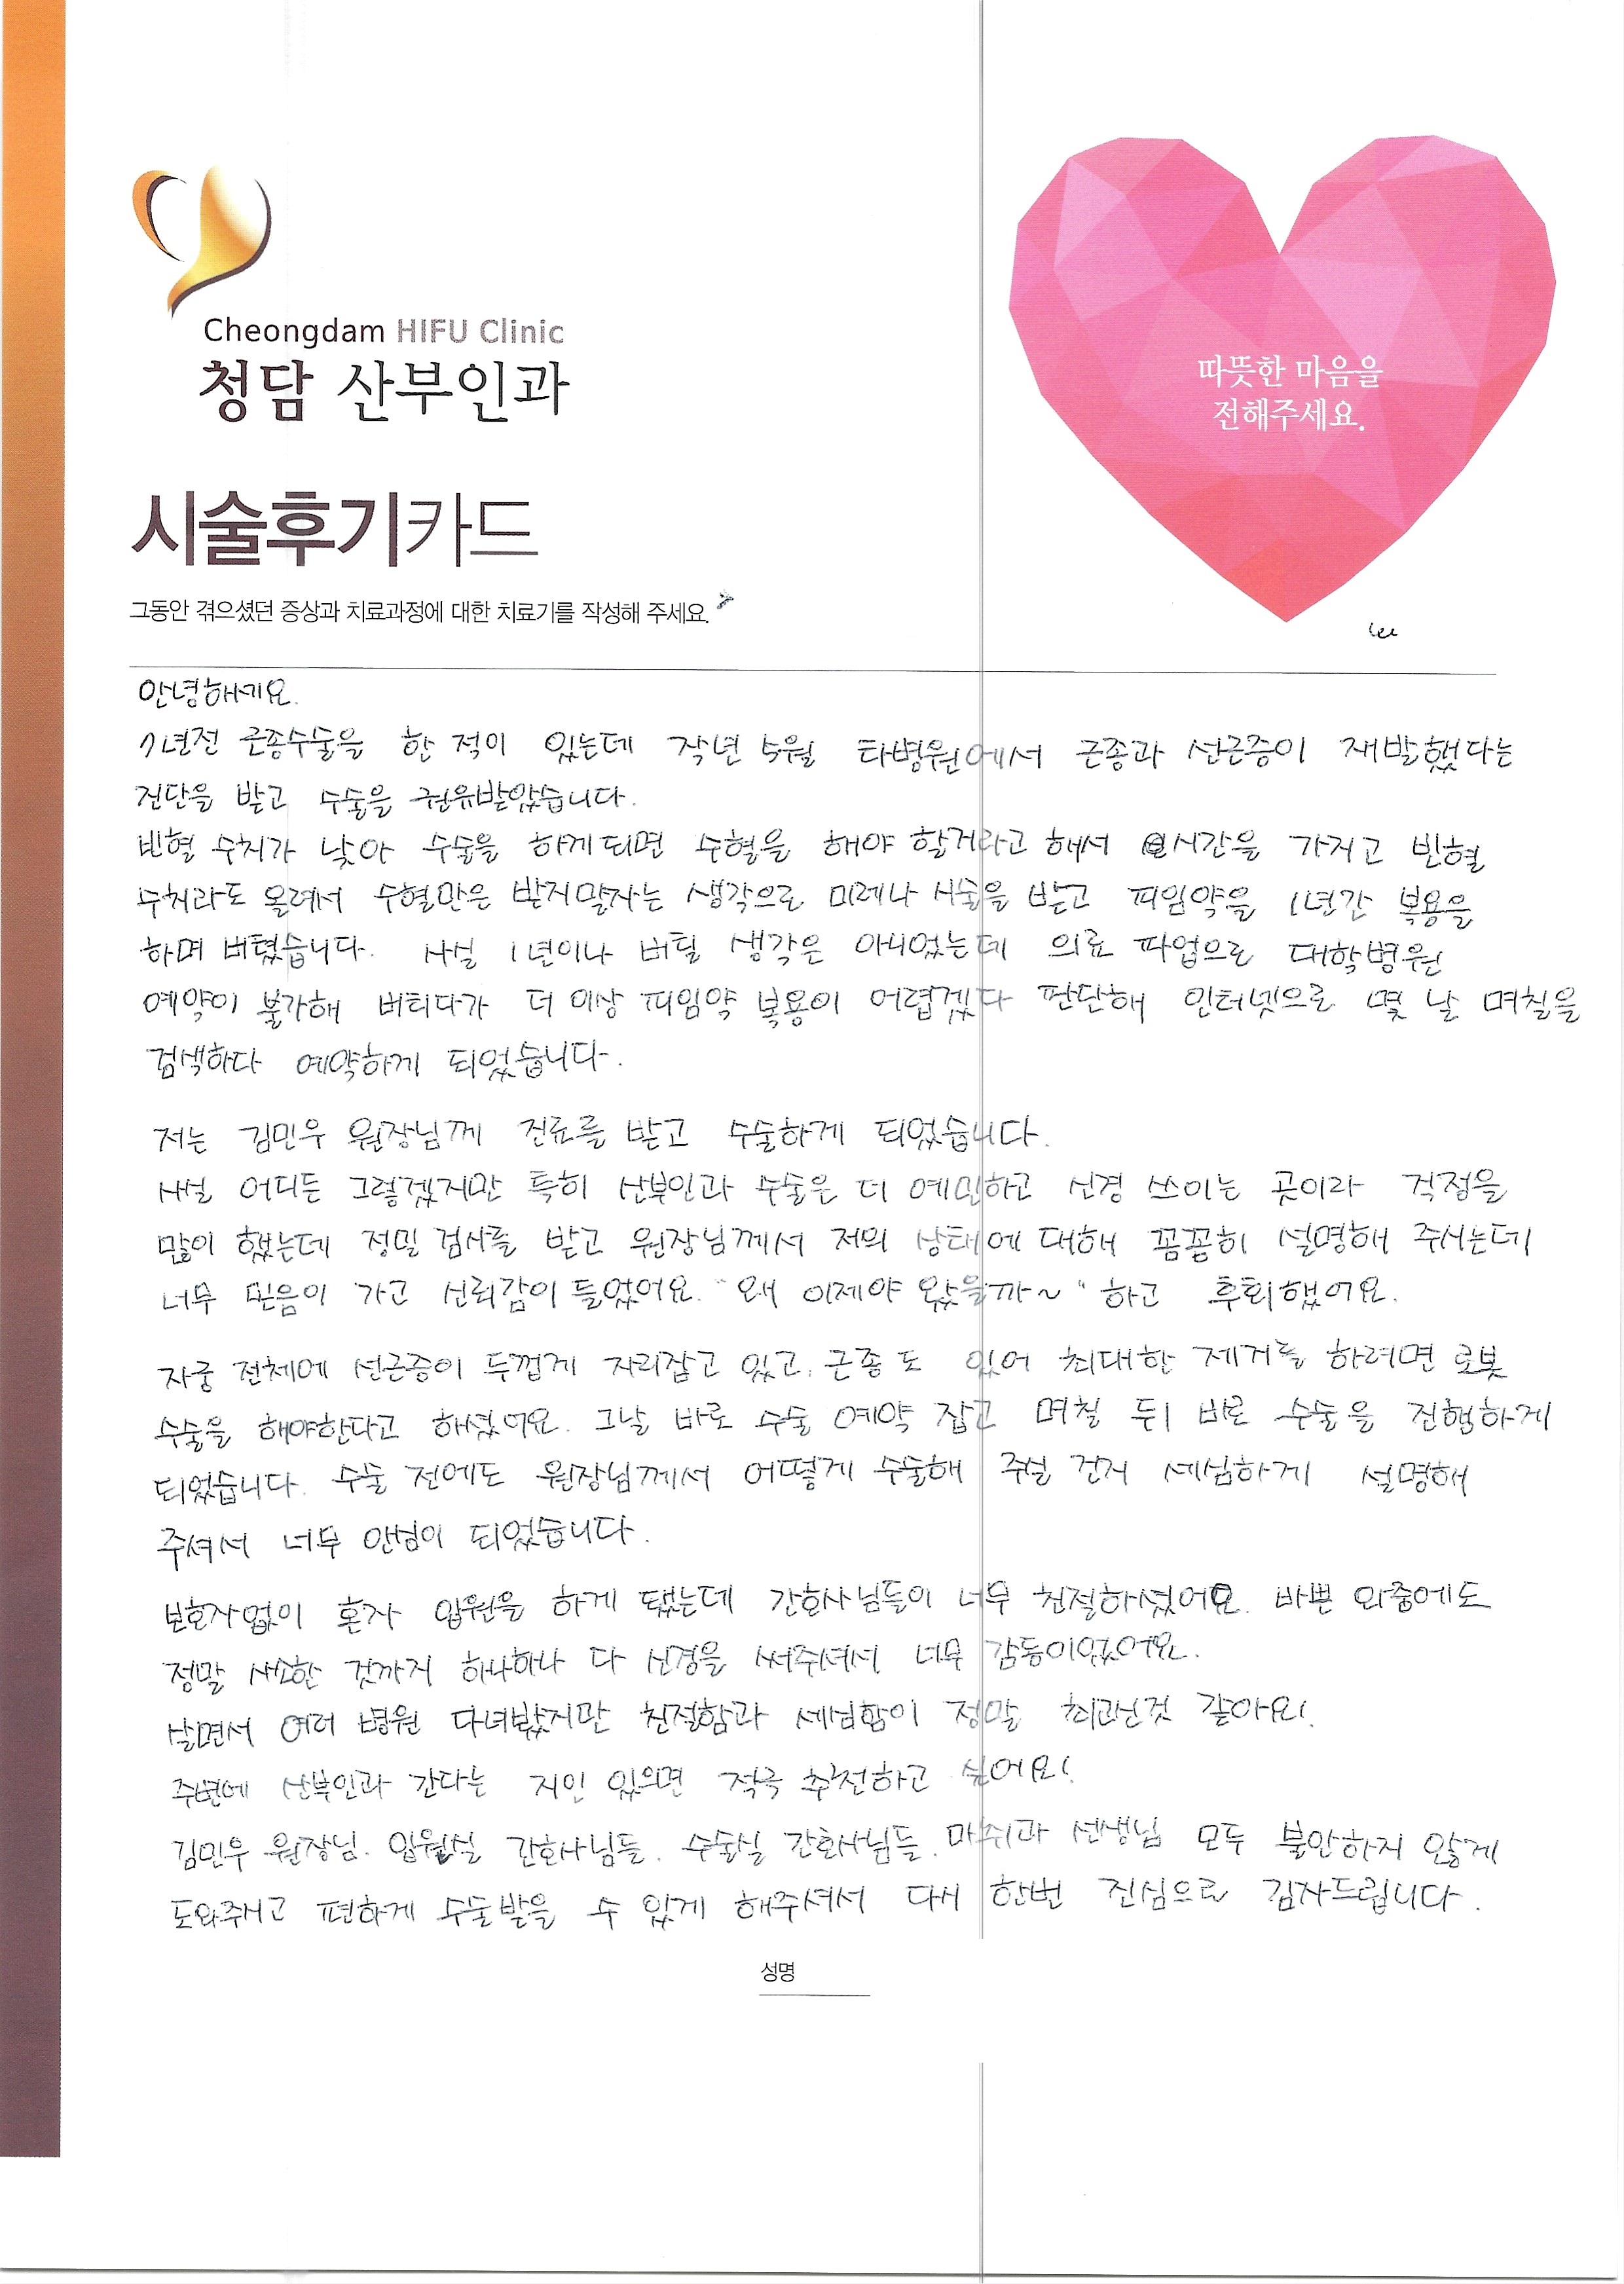 Cheongdam HIFU Clinic
청담 산부인과
따뜻한 마음을
전해주세요.
시술후기카드
그동안 겪으셨던 증상과 치료과정에 대한 치료기를 작성해 주세요.
안녕하세요.
7년전 근종수술을 한 적이 있는데 작년 5월 타병원에서 근종과 선근증이 재발했다는
진단을 받고 수술을 권유받았습니다.
빈혈 수치가 낮아 수술을 하게되면 수혈을 해야 할거라고 해서 시간을 가지고 빈혈
수치라도 올려서 수혈만은 받지말자는 생각으로 미레나 시술을 받고 피임약을 1년간 복용을
하며 버텼습니다. 사실 1년이나 버틸 생각은 아니었는데 의료 파업으로 대학병원
예약이 불가해 버티다가 더 이상 피임약 복용이 어렵겠다 판단해 인터넷으로 몇 날 며칠을
검색하다 예약하게 되었습니다.
저는 김민우 원장님께 진료를 받고 수술하게 되었습니다.
사실 어디든 그렇겠지만 특히 산부인과 수술은 더 예민하고 신경 쓰이는 곳이라 걱정을
많이 했는데 정밀 검사를 받고 원장님께서 저의 상태에 대해 꼼꼼히 설명해 주시는데
너무 믿음이 가고 신뢰감이 들었어요. "왜 이제야 왔을까~" 하고 후회했어요.
자궁 전체에 선근증이 두껍게 자리잡고 있고, 근종도 있어 최대한 제거를 하려면 로봇
수술을 해야한다고 하셨어요. 그날 바로 수술 예약 잡고 며칠 뒤 바로 수술을 진행하게
되었습니다. 수술 전에도 원장님께서 어떻게 수술해 주실 건지 세심하게 설명해
주셔서 너무 안심이 되었습니다.
보호자없이 혼자 입원을 하게 됐는데 간호사님들이 너무 친절하셨어요. 바쁜 와중에도
정말 사소한 것까지 하나하나 다 신경을 써주셔서 너무 감동이었어요.
살면서 여러 병원 다녀봤지만 친절함과 세심함이 정말 최고인것 같아요!
주변에 산부인과 간다는 지인 있으면 적극 추천하고 싶어요!
김민우 원장님. 입원실 간호사님들. 수술실 간호사님들. 마취과 선생님 모두 불안하지 않게
도와주시고 편하게 수술받을 수 있게 해주셔서 다시 한번 진심으로 감사드립니다.
성명